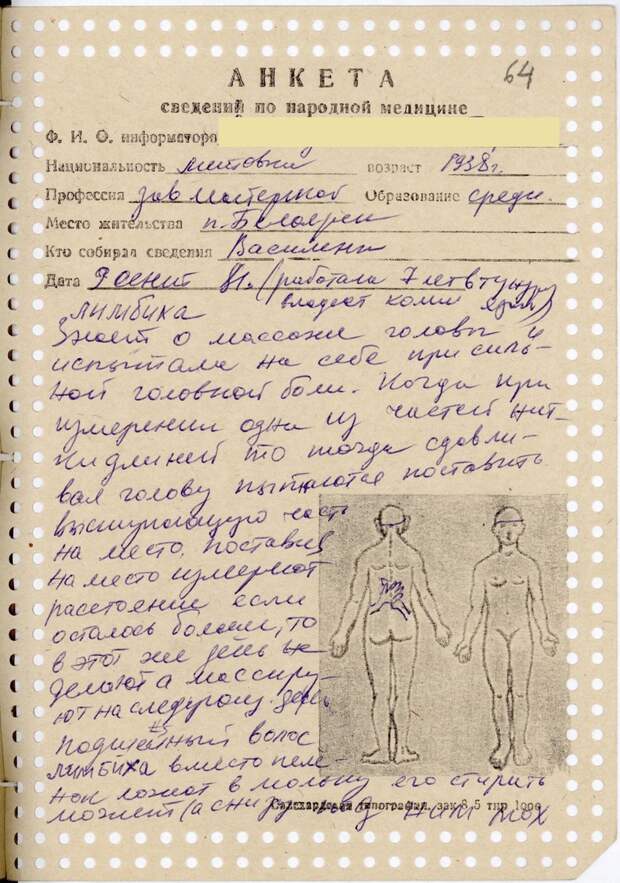 64
АНКЕТА
сведений по народной медицине
Ф. И. О. информатора
Национальность литовка возраст 1938 г.
Профессия зав мастерской Образование средн.
Место жительства п. Белоярск
Кто собирал сведения Василенк
Дата 9 сент 81. (работала 7 лет в тундре
владеет коми языком)
лимбика
Знает о массаже головы и
испытала на себе при силь-
ной головной боли. Когда при
измерении одна из частей нит-
ки длиней то тогда сдавли-
вая голову пытаются поставить
выступающую часть
на место. Поставив
на место измеряют
расстоение если
осталось болеее, то
в этот же день не
делают а массиру-
ют на следующ. день
подшейный волос
лимбиха вместо пеле-
нок ложат в люльку его стирать
можно (а снизу под ним мох
Салехардская типография. зак 8,5 тир 1000